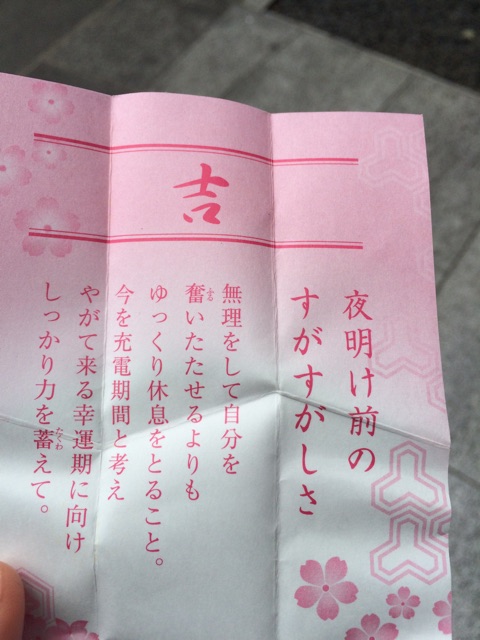 吉
夜明け前の
すがすがしさ
無理をして自分を
奮いたたせるよりも
ゆっくり休息をとること。
今を充電期間と考え
やがて来る幸運期に向け
しっかり力を蓄えて。